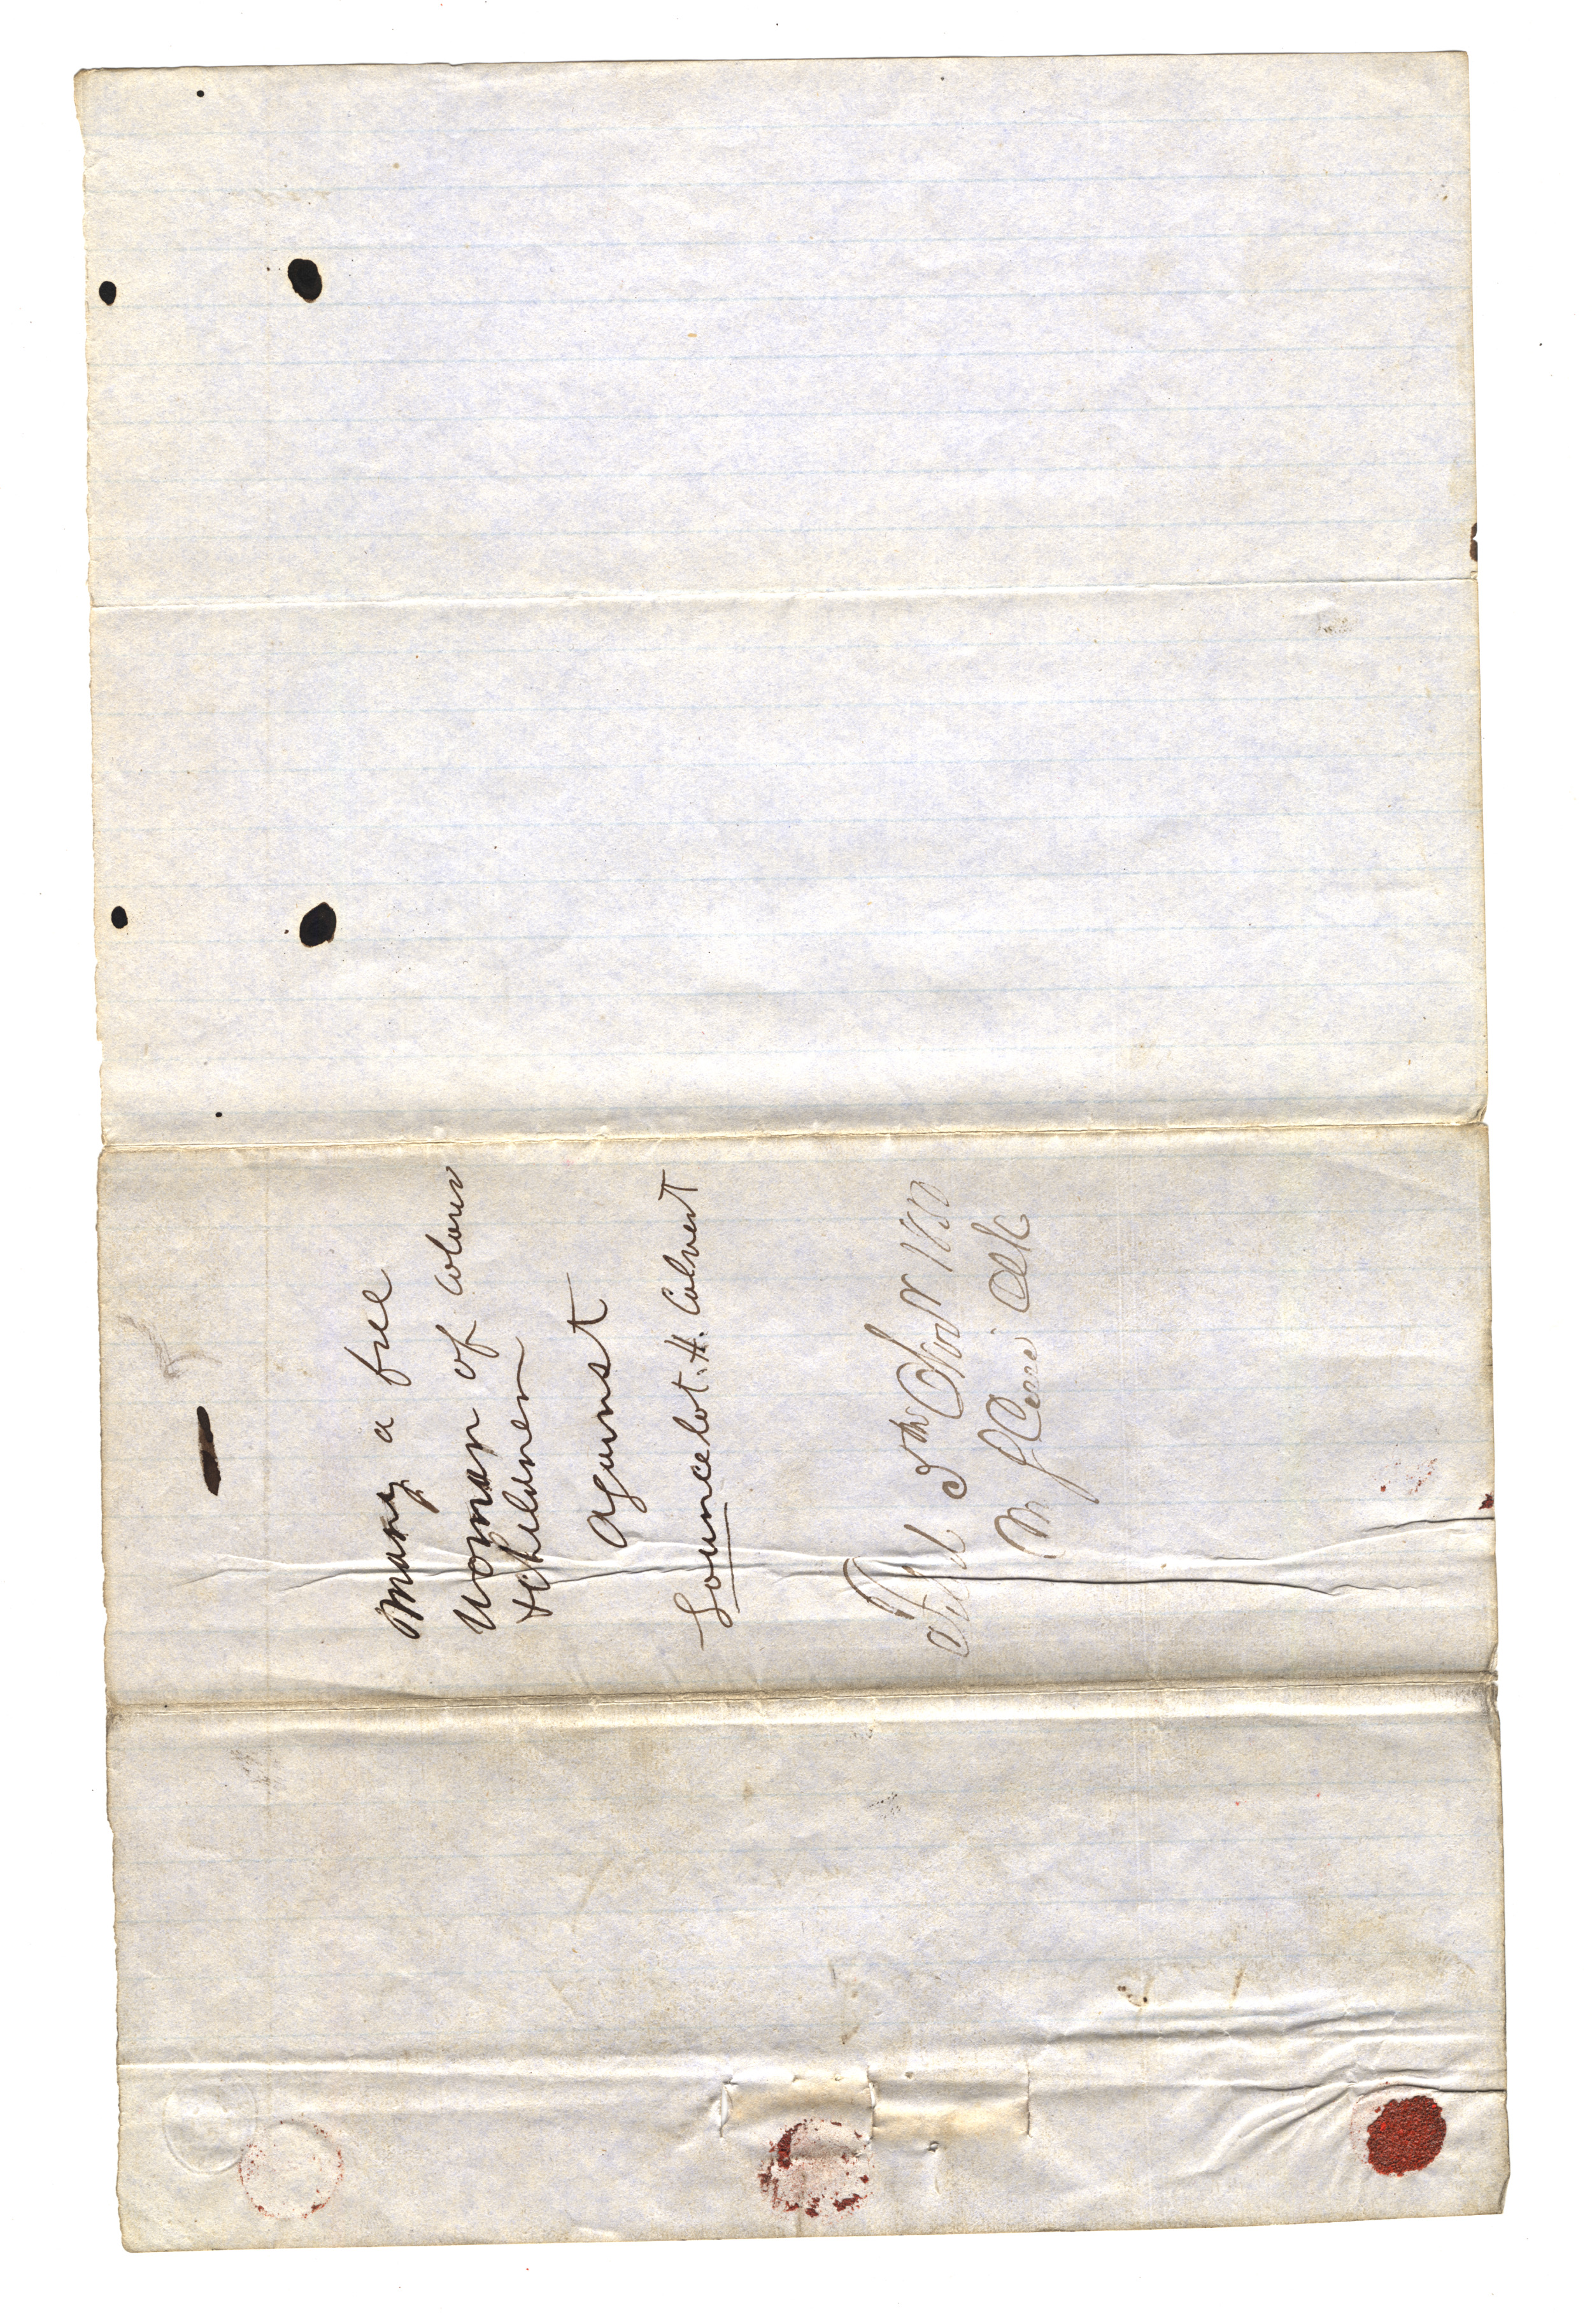 Mary a free
woman of Colour
& Children
against
Launcelot. H. Calvert
Filed 5th 1850
Clk